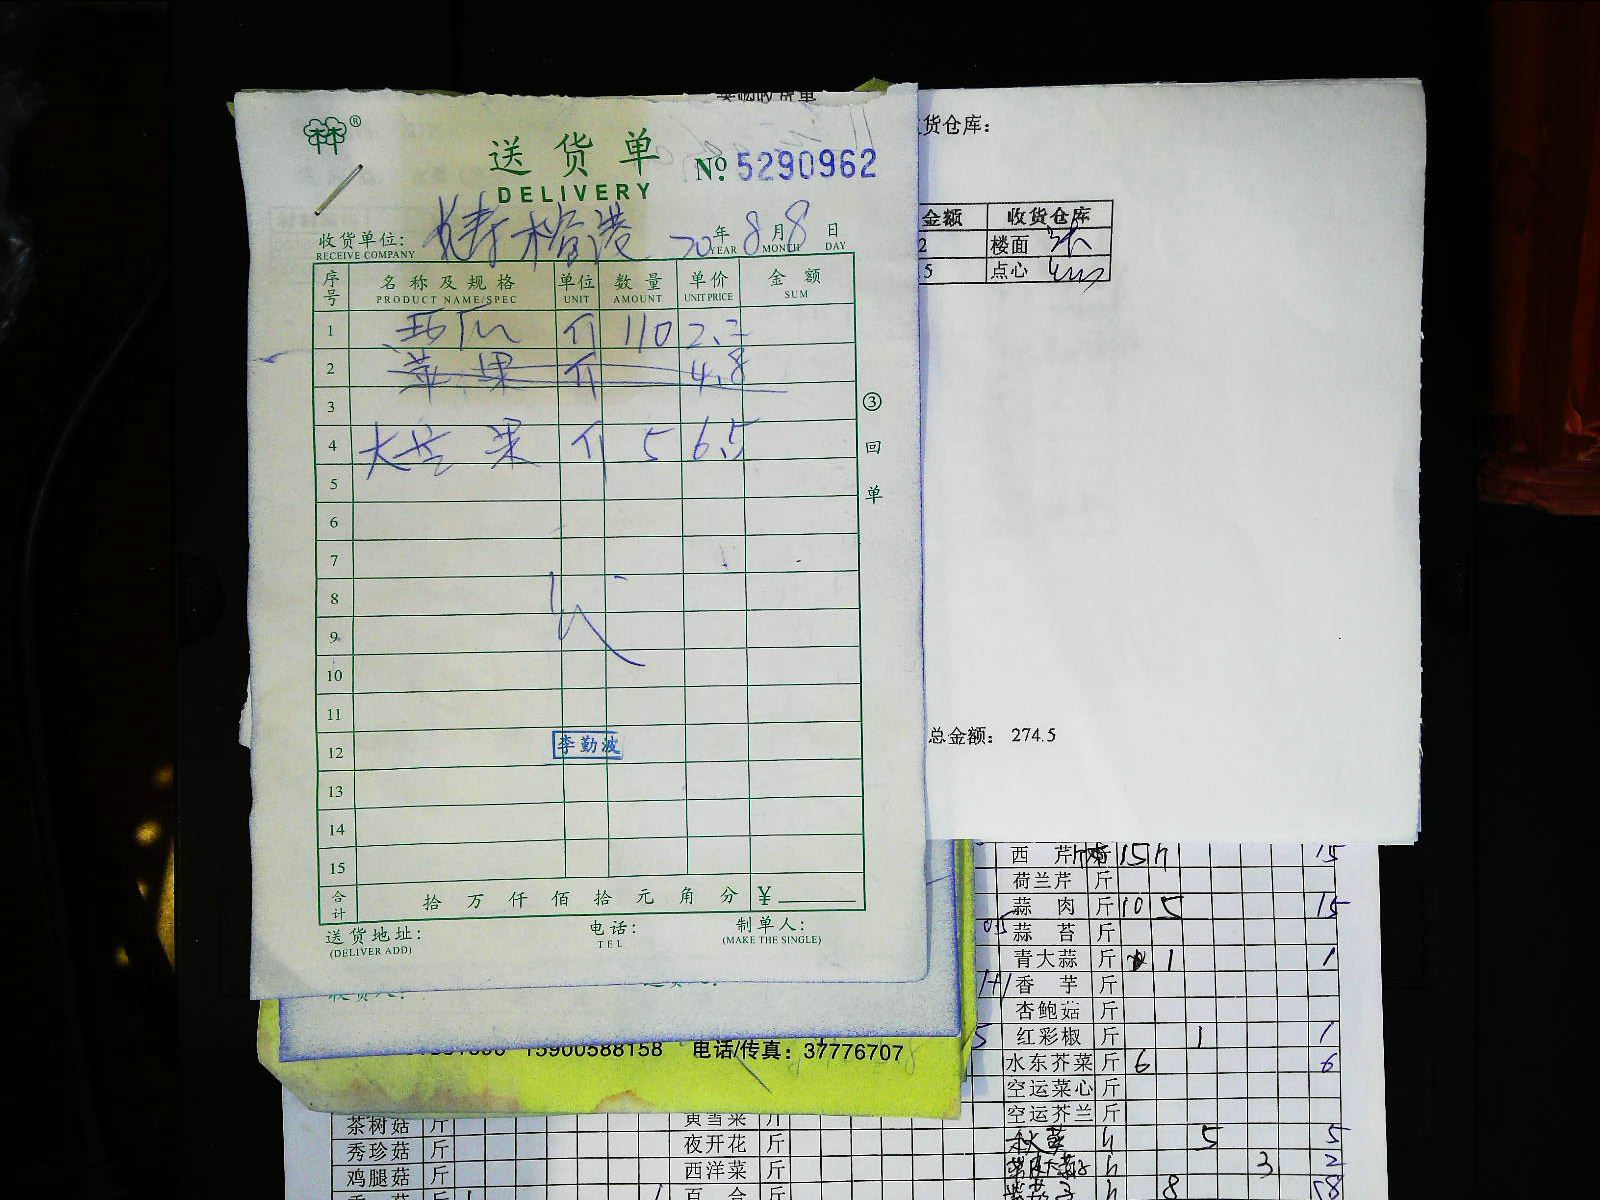 送货单
№ 5290962
DELIVERY
收货单位: 年 8 月 8 日
RECEIVE COMPANY YEAR MONTH DAY
序号 名称及规格 单位 数量 单价 金额
PRODUCT NAME/SPEC UNIT AMOUNT UNIT PRICE SUM
1 西瓜 斤 110 2.2
2 苹果 斤 4.8
3
4 大芒果 斤 5 6.5
5
6
7
8
9
10
11
12 李勤波
13
14
15
合计 拾 万 仟 佰 拾 元 角 分 ¥
送货地址: 电话: 制单人:
(DELIVER ADD) TEL (MAKE THE SINGLE)
③回单
货仓库:
金额 收货仓库
2 楼面
5 点心
总金额: 274.5
15900588158 电话/传真: 37776707
西芹 斤 15 15
荷兰芹 斤
蒜肉 斤 10 5 15
蒜苔 斤
青大蒜 斤 1 1
香芋 斤
杏鲍菇 斤
红彩椒 斤 1 1
水东芥菜 斤 6 6
空运菜心 斤
空运芥兰 斤
茶树菇 斤
秀珍菇 斤 夜开花 斤 5 5
鸡腿菇 斤 西洋菜 斤 3 2
百合 斤 8